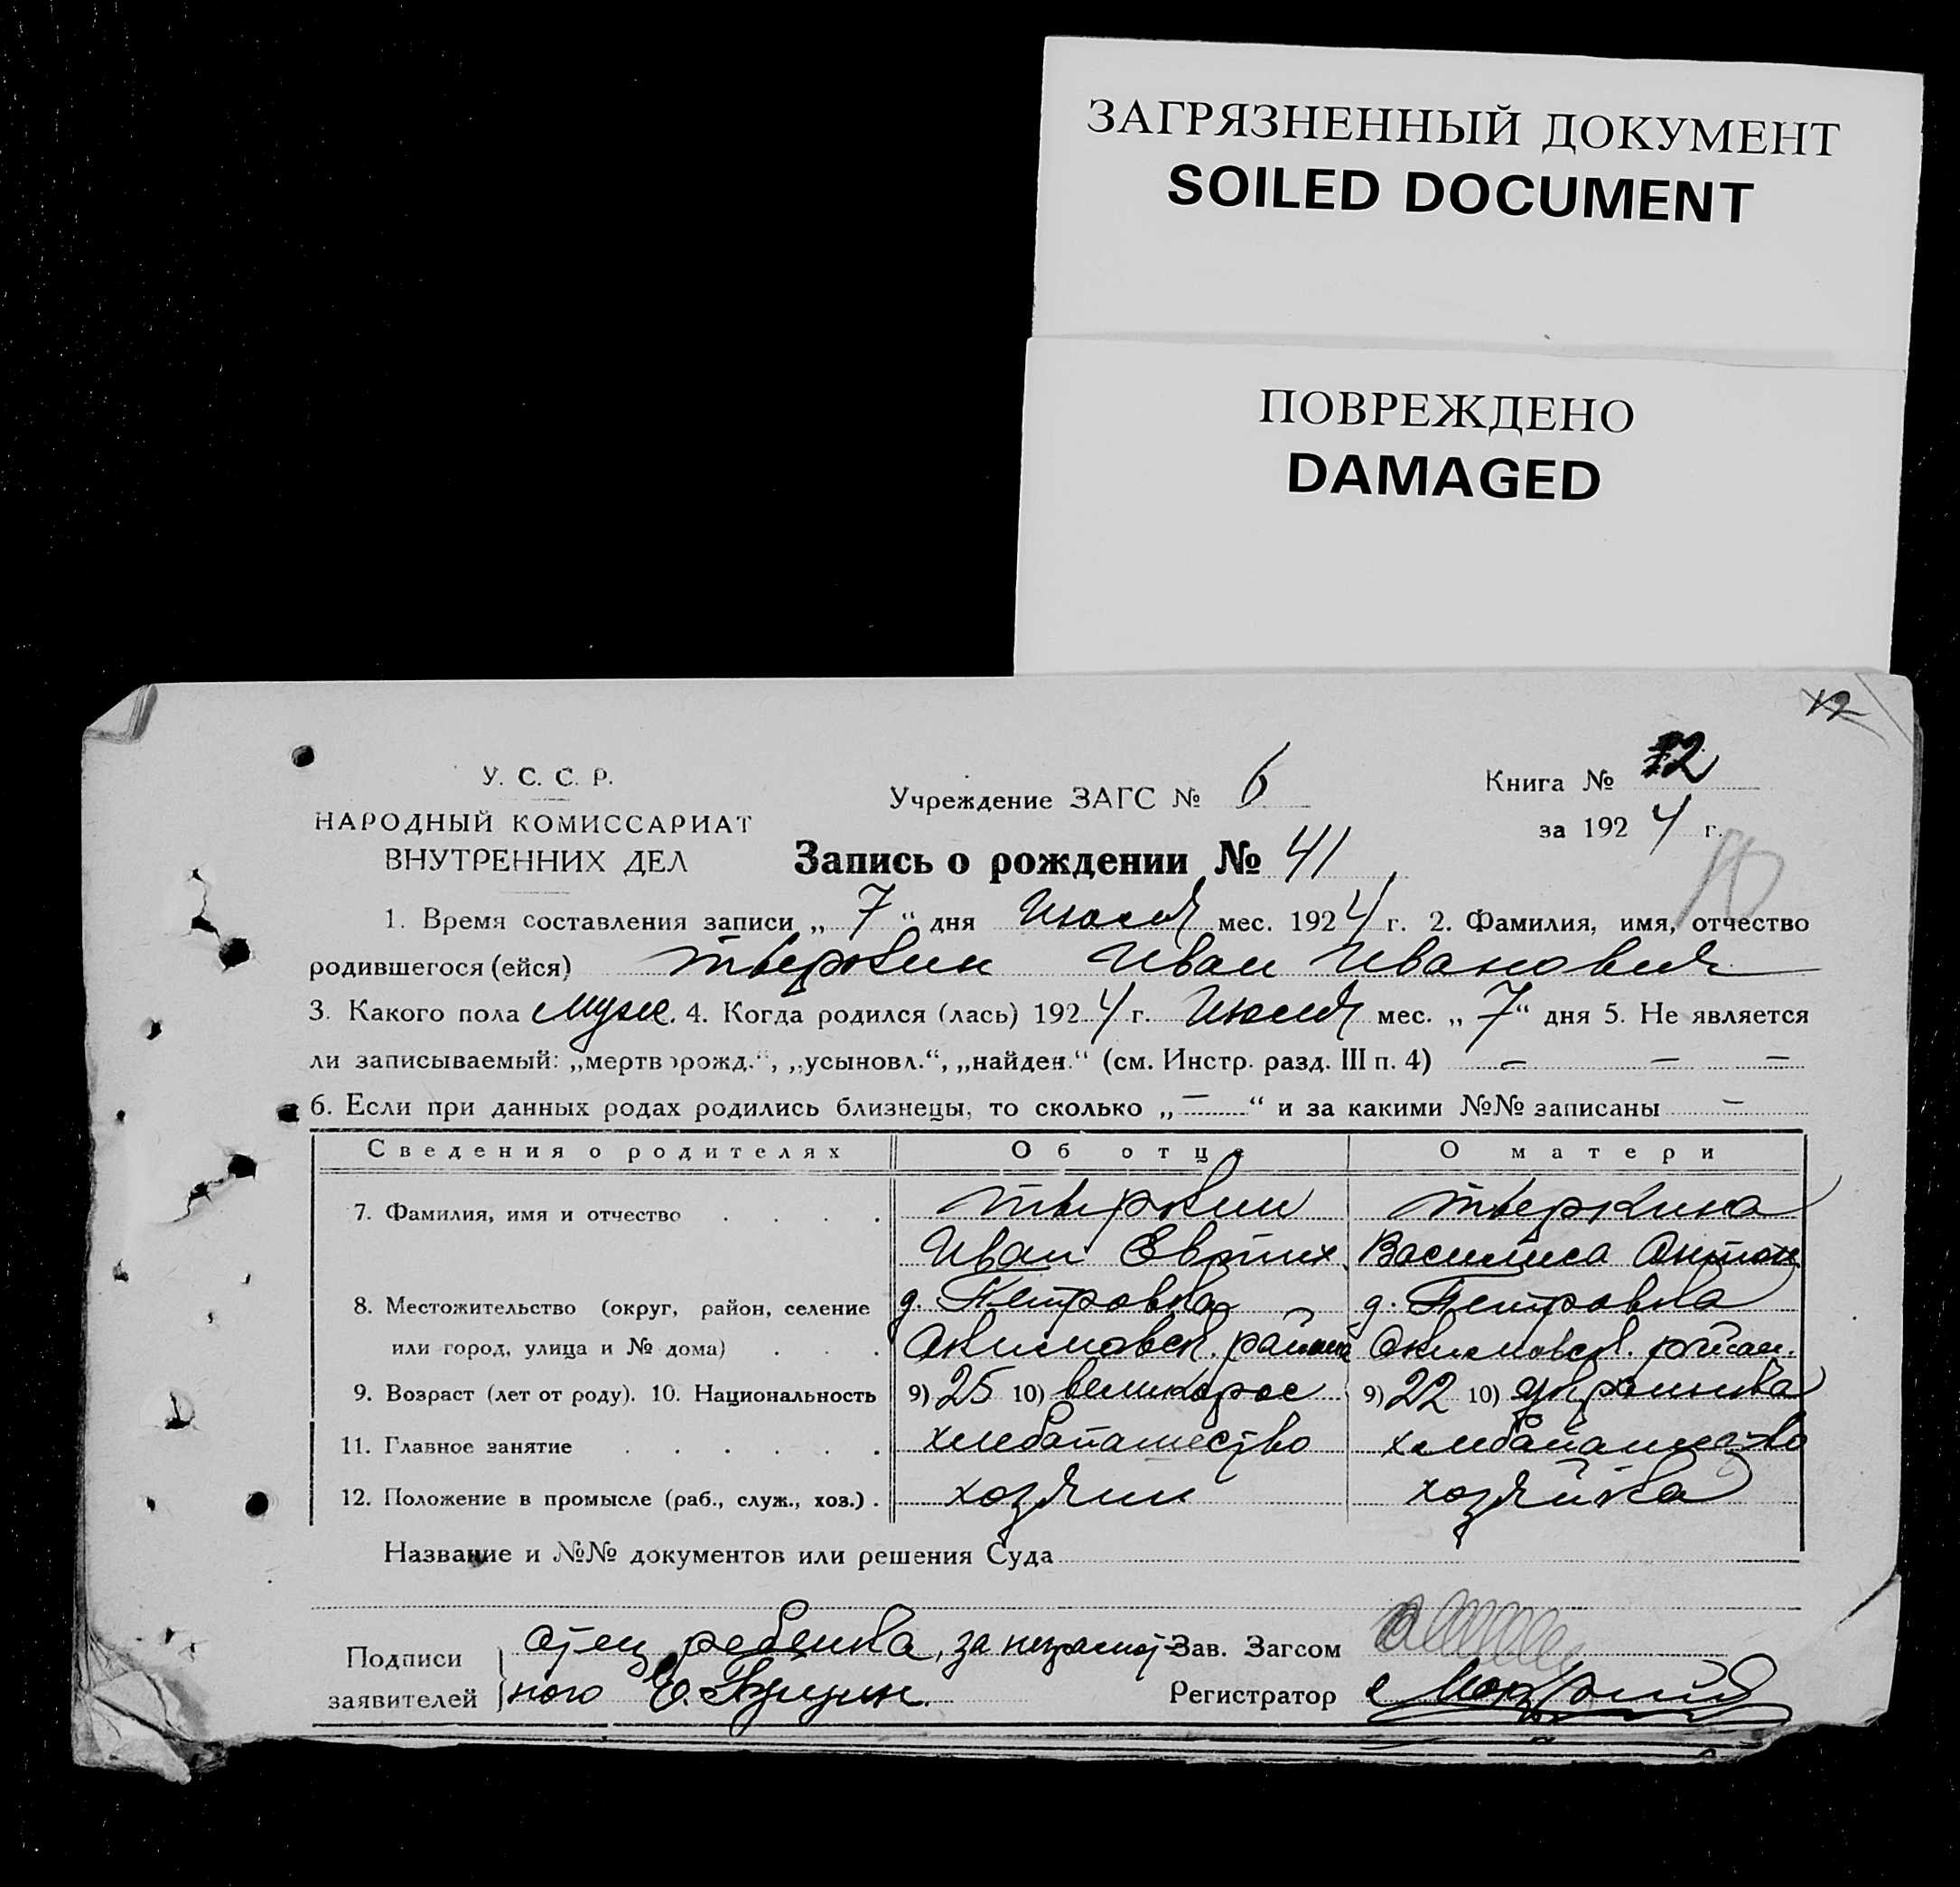 ЗАГРЯЗНЕННЫЙ ДОКУМЕНТ
SOILED DOCUMENT
ПОВРЕЖДЕНО
DAMAGED
12
У. С. С. Р.
НАРОДНЫЙ КОМИССАРИАТ
ВНУТРЕННИХ ДЕЛ
Учреждение ЗАГС № 6
Книга № 12
за 1924 г.
Запись о рождении № 41
1. Время составления записи „7“ дня Июля мес. 1924 г. 2. Фамилия, имя, отчество
родившегося (ейся) Тверкин Иван Иванович
3. Какого пола Муж. 4. Когда родился (лась) 1924 г. Июля мес. „7“ дня 5. Не является
ли записываемый: „мертворожд.“, „усыновл.“, „найден.“ (см. Инстр. разд. III п. 4) — — —
6. Если при данных родах родились близнецы, то сколько „—“ и за какими №№ записаны —
Сведения о родителях Об отце О матери
7. Фамилия, имя и отчество Тверкин Тверкина
Иван Василиса Антон
8. Местожительство (округ, район, селение д. Петровка д. Петровка
или город, улица и № дома) Акимовск. района Акимовск. район.
9. Возраст (лет от роду). 10. Национальность 9) 25 10) великорос 9) 22 10) украинка
11. Главное занятие хлебопашество хлебопашество
12. Положение в промысле (раб., служ., хоз.) хозяин хозяйка
Название и №№ документов или решения Суда
Подписи
заявителей
отец ребенка, за неграмот-
ного
Зав. Загсом
Регистратор